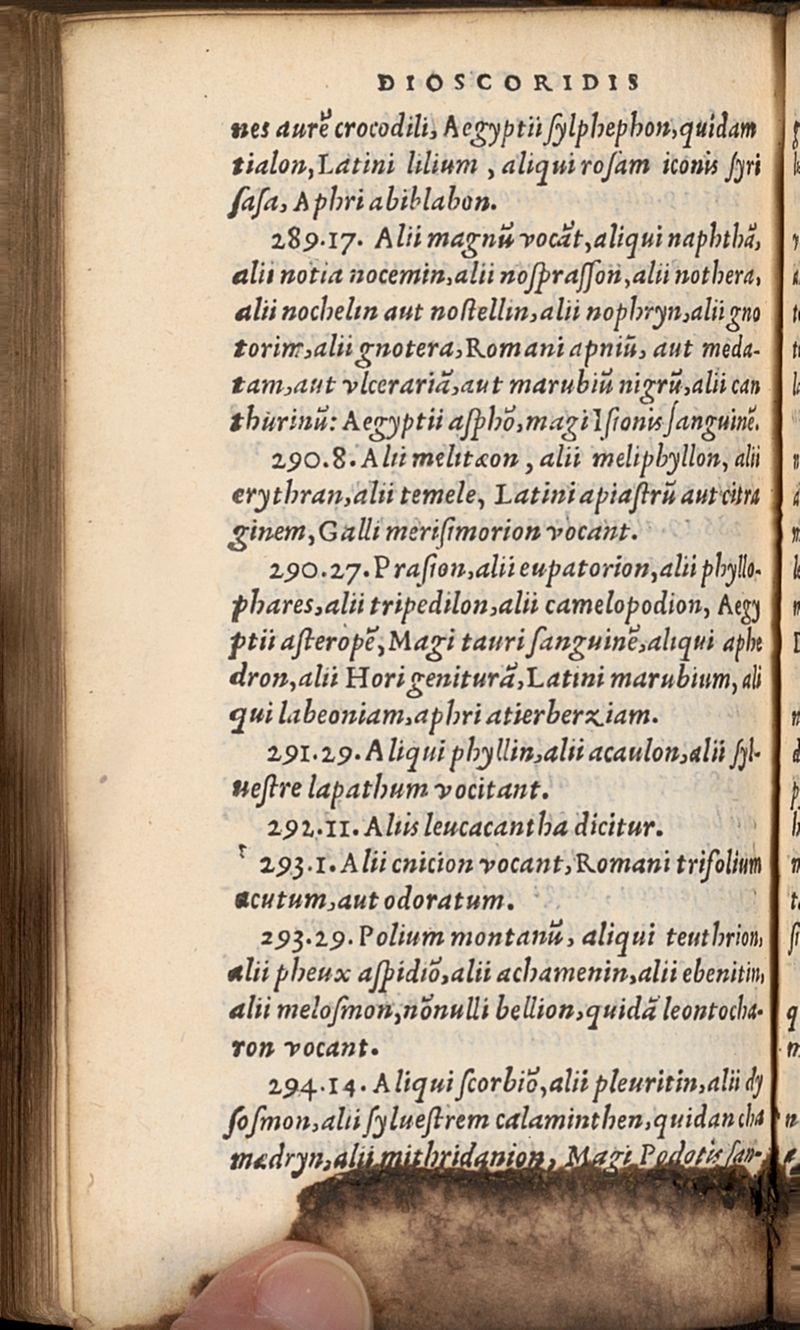 DIOSCORIDIS
nes aurē crocodili, Aegyptii ſylphephon, quidam
tialon, Latini lilium , aliqui roſam iconis ſyri
ſaſa, Aphri abiblabon.
289.17. Alii magnū vocāt, aliqui naphthā,
alii notia nocemin, alii noſpraſſon, alii nothera,
alii nochelin aut noſtellin, alii nophryn, alii gno
torim, alii gnotera, Romani apniū, aut meda-
tam, aut vlcerariā, aut marubiū nigrū, alii can
thurinū: Aegyptii aſphō, magi Iſionis ſanguinē.
290.8. Alii melitæon , alii meliphyllon, alii
erythran, alii temele, Latini apiaſtrū aut citra
ginem, Galli meriſimorion vocant.
290.27. Praſion, alii eupatorion, alii phyllo-
phares, alii tripedilon, alii camelopodion, Aegy
ptii aſteropē, Magi tauri ſanguinē, aliqui aphe
dron, alii Hori geniturā, Latini marubium, ali
qui labeoniam, aphri atierberziam.
291.29. Aliqui phyllin, alii acaulon, alii ſyl-
ueſtre lapathum vocitant.
292.11. Aliis leucacantha dicitur.
293.1. Alii cnicion vocant, Romani trifolium
acutum, aut odoratum.
293.29. Polium montanū, aliqui teuthrion,
alii pheux aſpidiō, alii achamenin, alii ebenitin,
alii meloſmon, nōnulli bellion, quidā leontocha-
ron vocant.
294.14. Aliqui ſcorbiō, alii pleuritin, alii dy
ſoſmon, alii ſylueſtrem calaminthen, quidan cha
mædryn, alii mithridanion, Magi Podotis ſan-